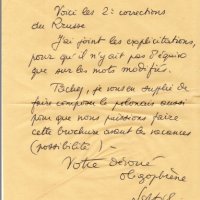 Voici les 2: corrections
du Russe
J'ai joint les explicitations,
pour qu'il n'y ait pas d'équivo
que sur les mots modifiés.
je vous en supplie de
faire composer le polonais aussi
pour que nous puissions faire
cette brochure avant les vacances
(possibilité).
Votre dévoué
oligophrène